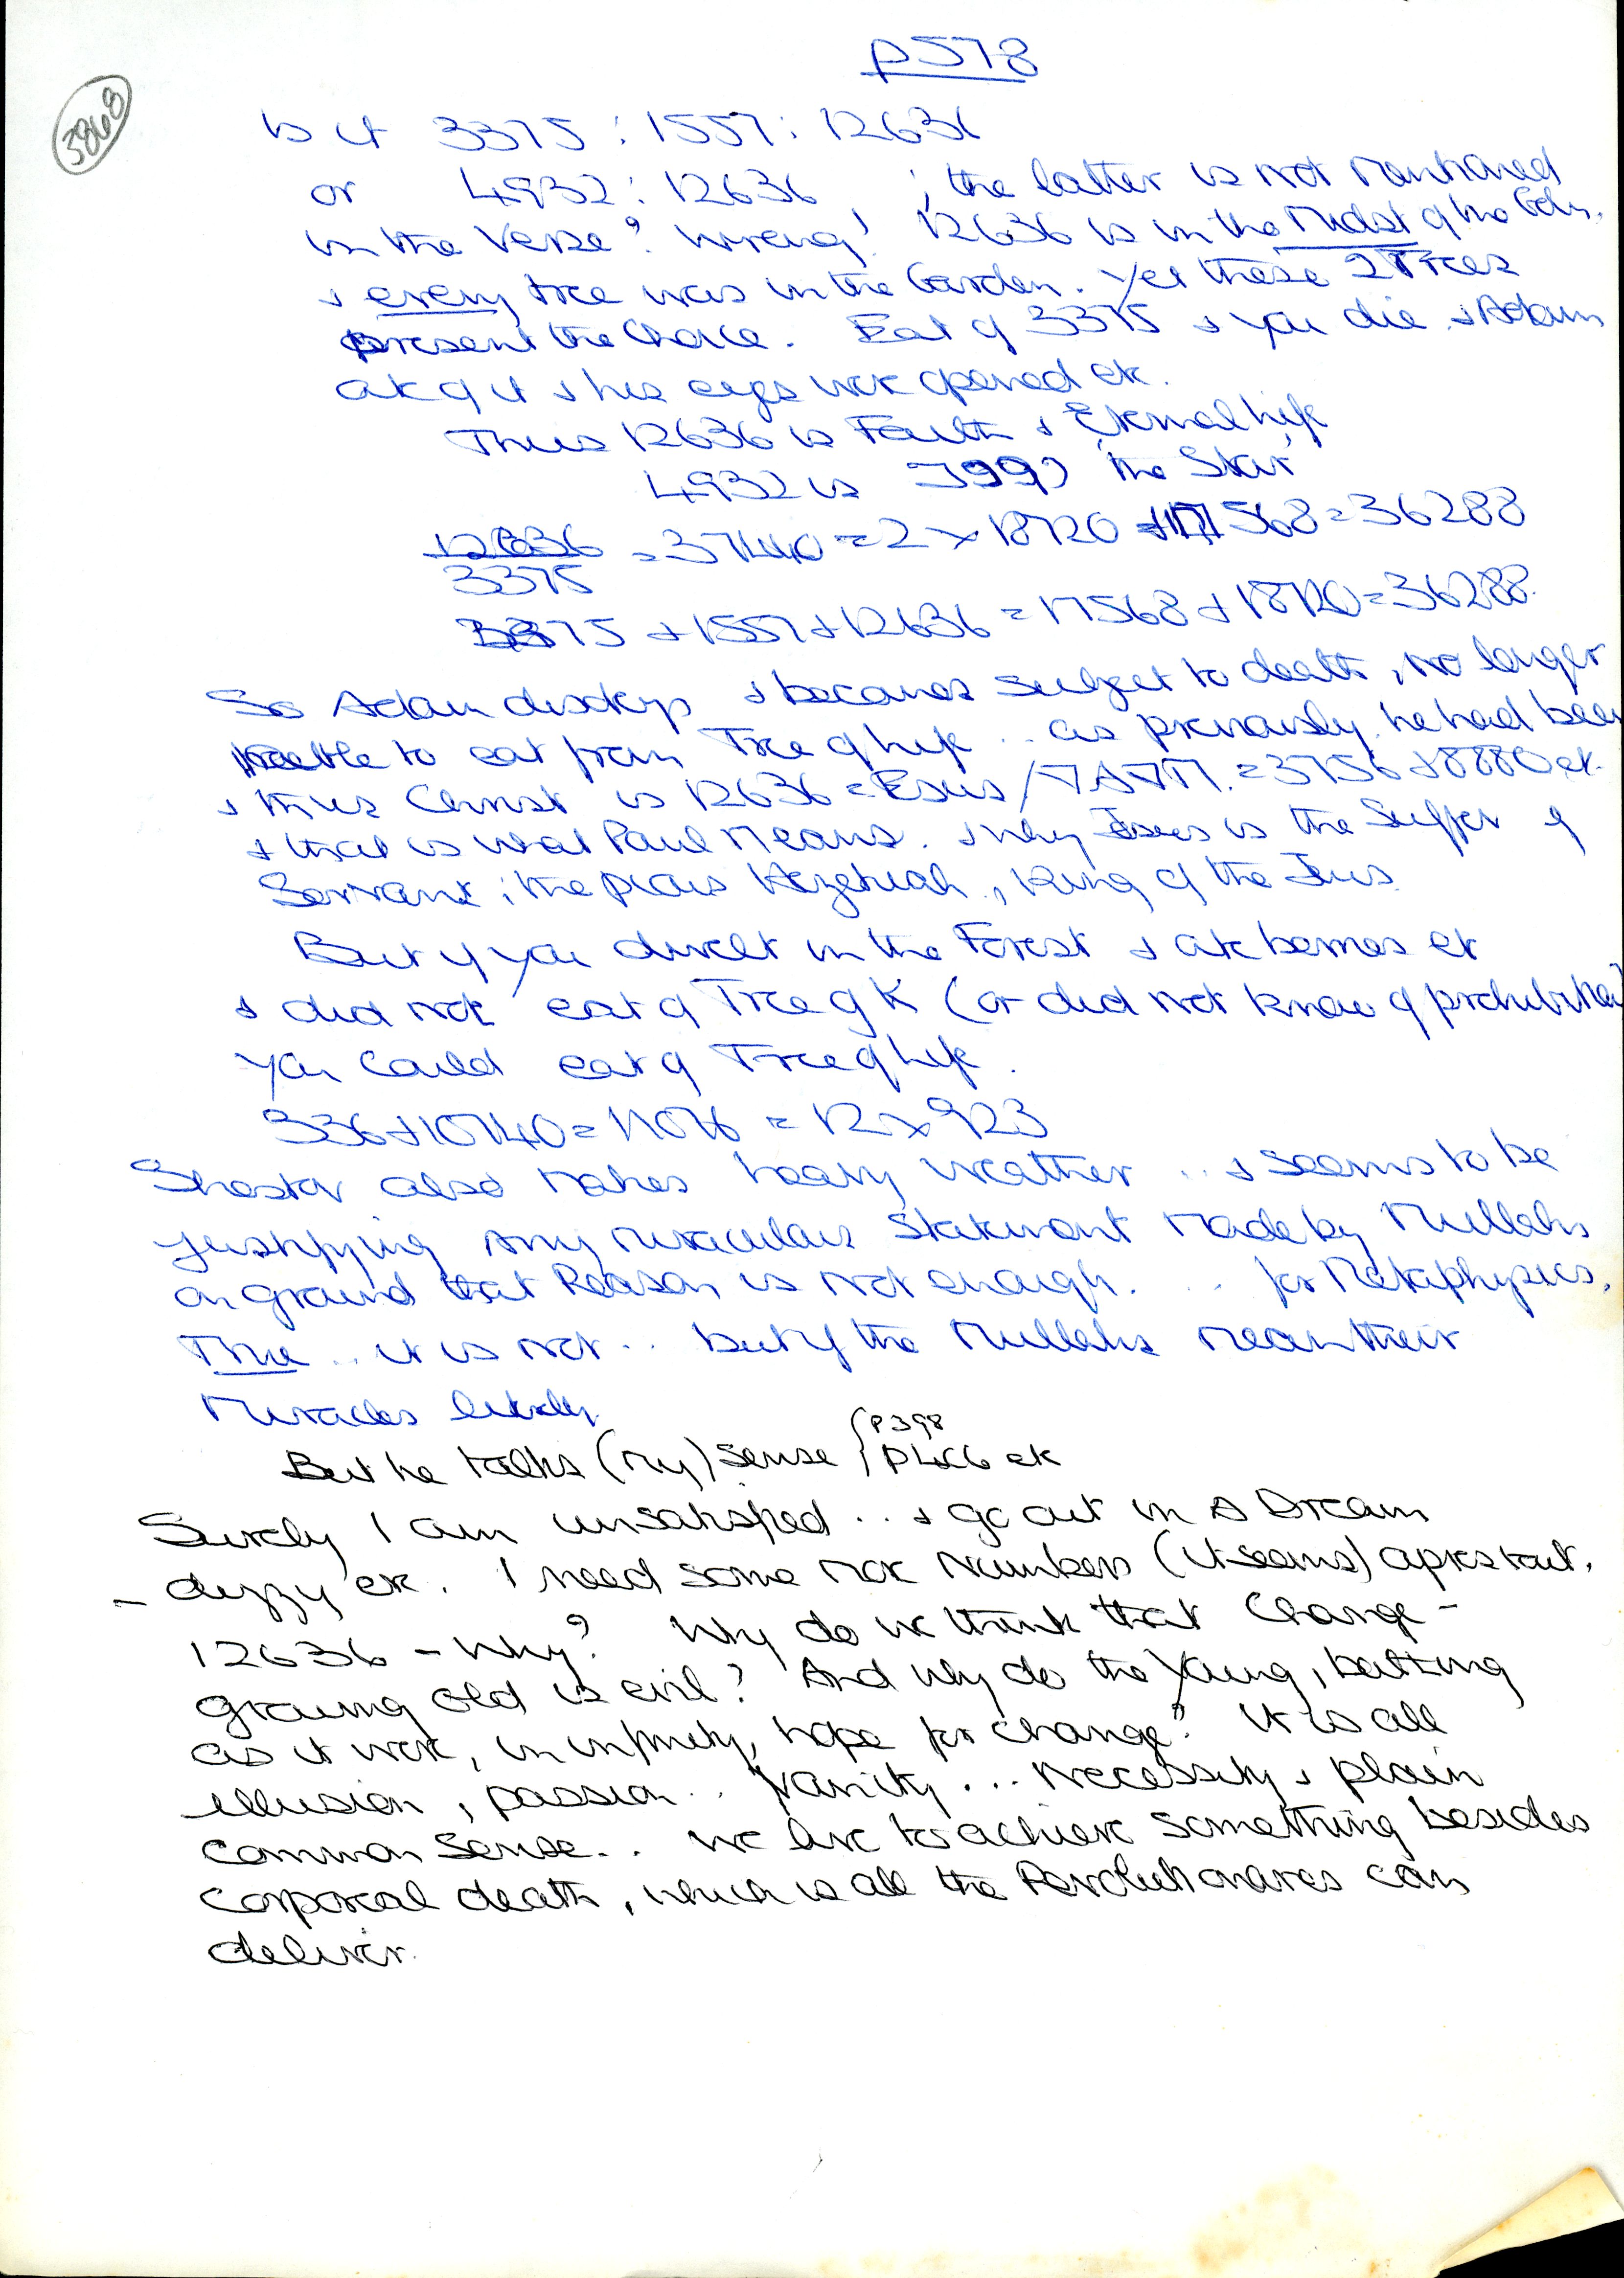 p578
3868
is it 3375 : 1557 : 12636
or 4932 : 12636 ; the latter is not mentioned
in the Verse? Wrong! 12636 is in the Midst of the Gdn.
& every tree was in the Garden. Yet these 2 Trees
present the Choice. Eat of 3375 & you die & Adam
ate of it & his eyes were opened etc.
Thus 12636 is Faith & Eternal life
4932 is the Star
12636 = 37440 = 2 x 18720 17568 = 36288
3375
3375 + 1557 + 12636 = 17568 + 18720 = 36288.
So Adam disobeys & becomes subject to death, no longer
able to eat from Tree of life .. as previously he had been
& thus Christ is 12636 = Esus / = 3756 + 8880 etc.
& that is what Paul means. & why Jesus is the Suffer g
Servant ; the pious Hezekiah, King of the Jews.
But if you dwelt in the Forest & ate berries etc
& did not eat of Tree of K (or did not know of prohibition)
you could eat of Tree of life.
336 + 10740 = 11076 = 12 x 923
Shestov also makes heavy weather .. & seems to be
justifying any miraculous statement made by Mullahs
on ground that Reason is not enough. .. for Metaphysics.
True .. it is not .. but if the Mullahs mean their
Miracles literally
But he talks (my) sense { p398
etc
Surely I am unsatisfied .. & go out in A Dream
- dizzy etc. I need some more Numbers (it seems) apres tout.
12636 - Why? Why do we think that Change -
growing old is evil? And why do the Young, batting
as it were, in infinity, hope for change? It is all
illusion, passion .. vanity ... necessity & plain
common sense .. we live to achieve something besides
corporeal death, which is all the Revolutionaries can
deliver.